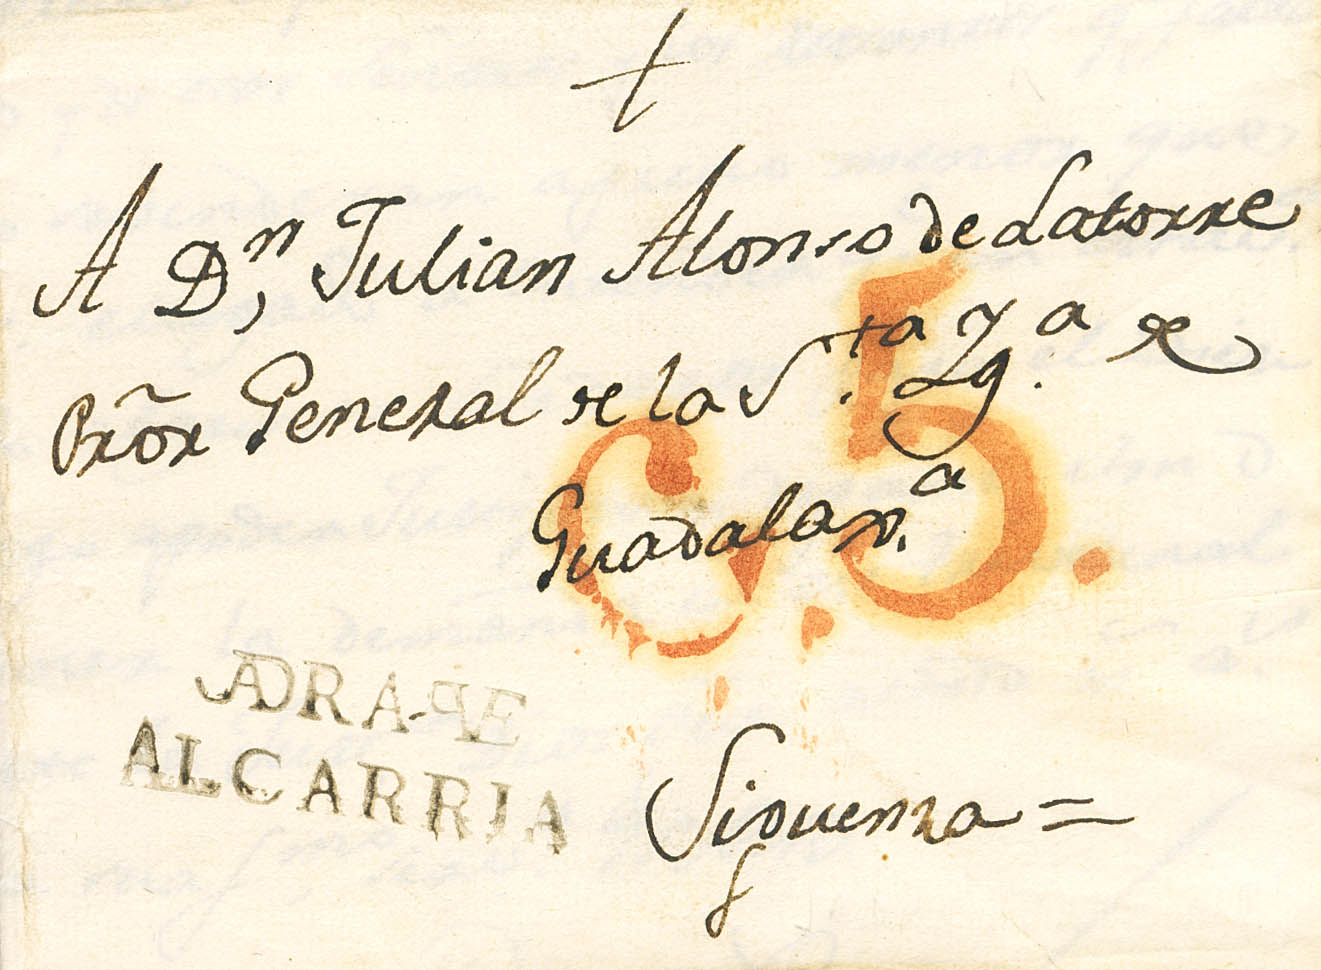 +
A Dn, Julian Alonso de Latorre
Prõr General de la S.ta Yg.a de
Guadalax.a
5.
ALCARRIA
Siguenza =